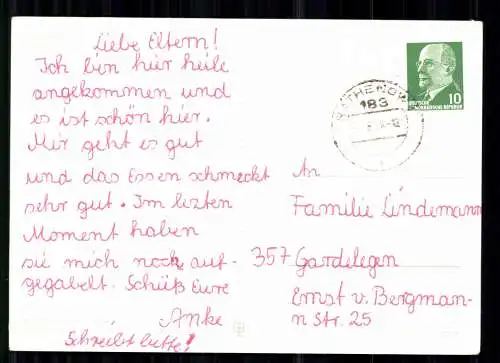 Liebe Eltern!
Ich bin hier heile
angekommen und
es ist schön hier.
Mir geht es gut
und das Essen schmeckt
sehr gut. Im lezten
Moment haben
sie mich noch auf-
gegabelt. Schüß Eure
Anke
Schreibt bitte!
RATHENOW
183
10
DEUTSCHE
DEMOKRATISCHE REPUBLIK
An
Familie Lindemann
357 Gardelegen
Ernst v. Bergman-
n Str. 25